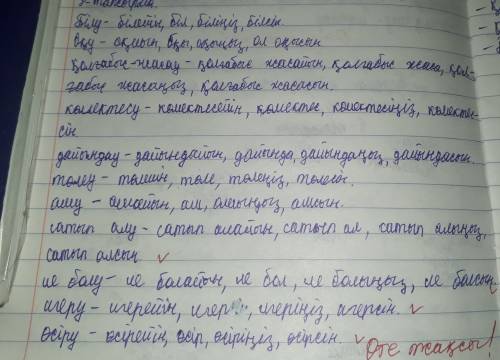 3-тапсырма.
Білу - білейін, біл, біліңіз, білсін.
Оқу - оқиын, оқы, оқыңыз, ол оқысын
Қолғабыс-жасау - қолғабыс жасайын, қолғабыс жаса, қол-
ғабыс жасаңыз, қолғабыс жасасын.
көмектесу - көмектесейін, көмектес, көмектесіңіз, көмектес-
сін
дайындау - дайындайын, дайында, дайындаңыз, дайындасын.
төлеу - төлейін, төле, төлеңіз, төлесін.
алу - алайын, ал, алыңыз, алсын.
сатып алу - сатып алайын, сатып ал, сатып алыңыз,
сатып алсын
ие болу - ие болайын, ие бол, ие болыңыз, ие болсын.
игеру - игерейін, игер, игеріңіз, игерсін.
өсіру - өсірейін, өсір, өсіріңіз, өсірсін.
Өте жақсы!